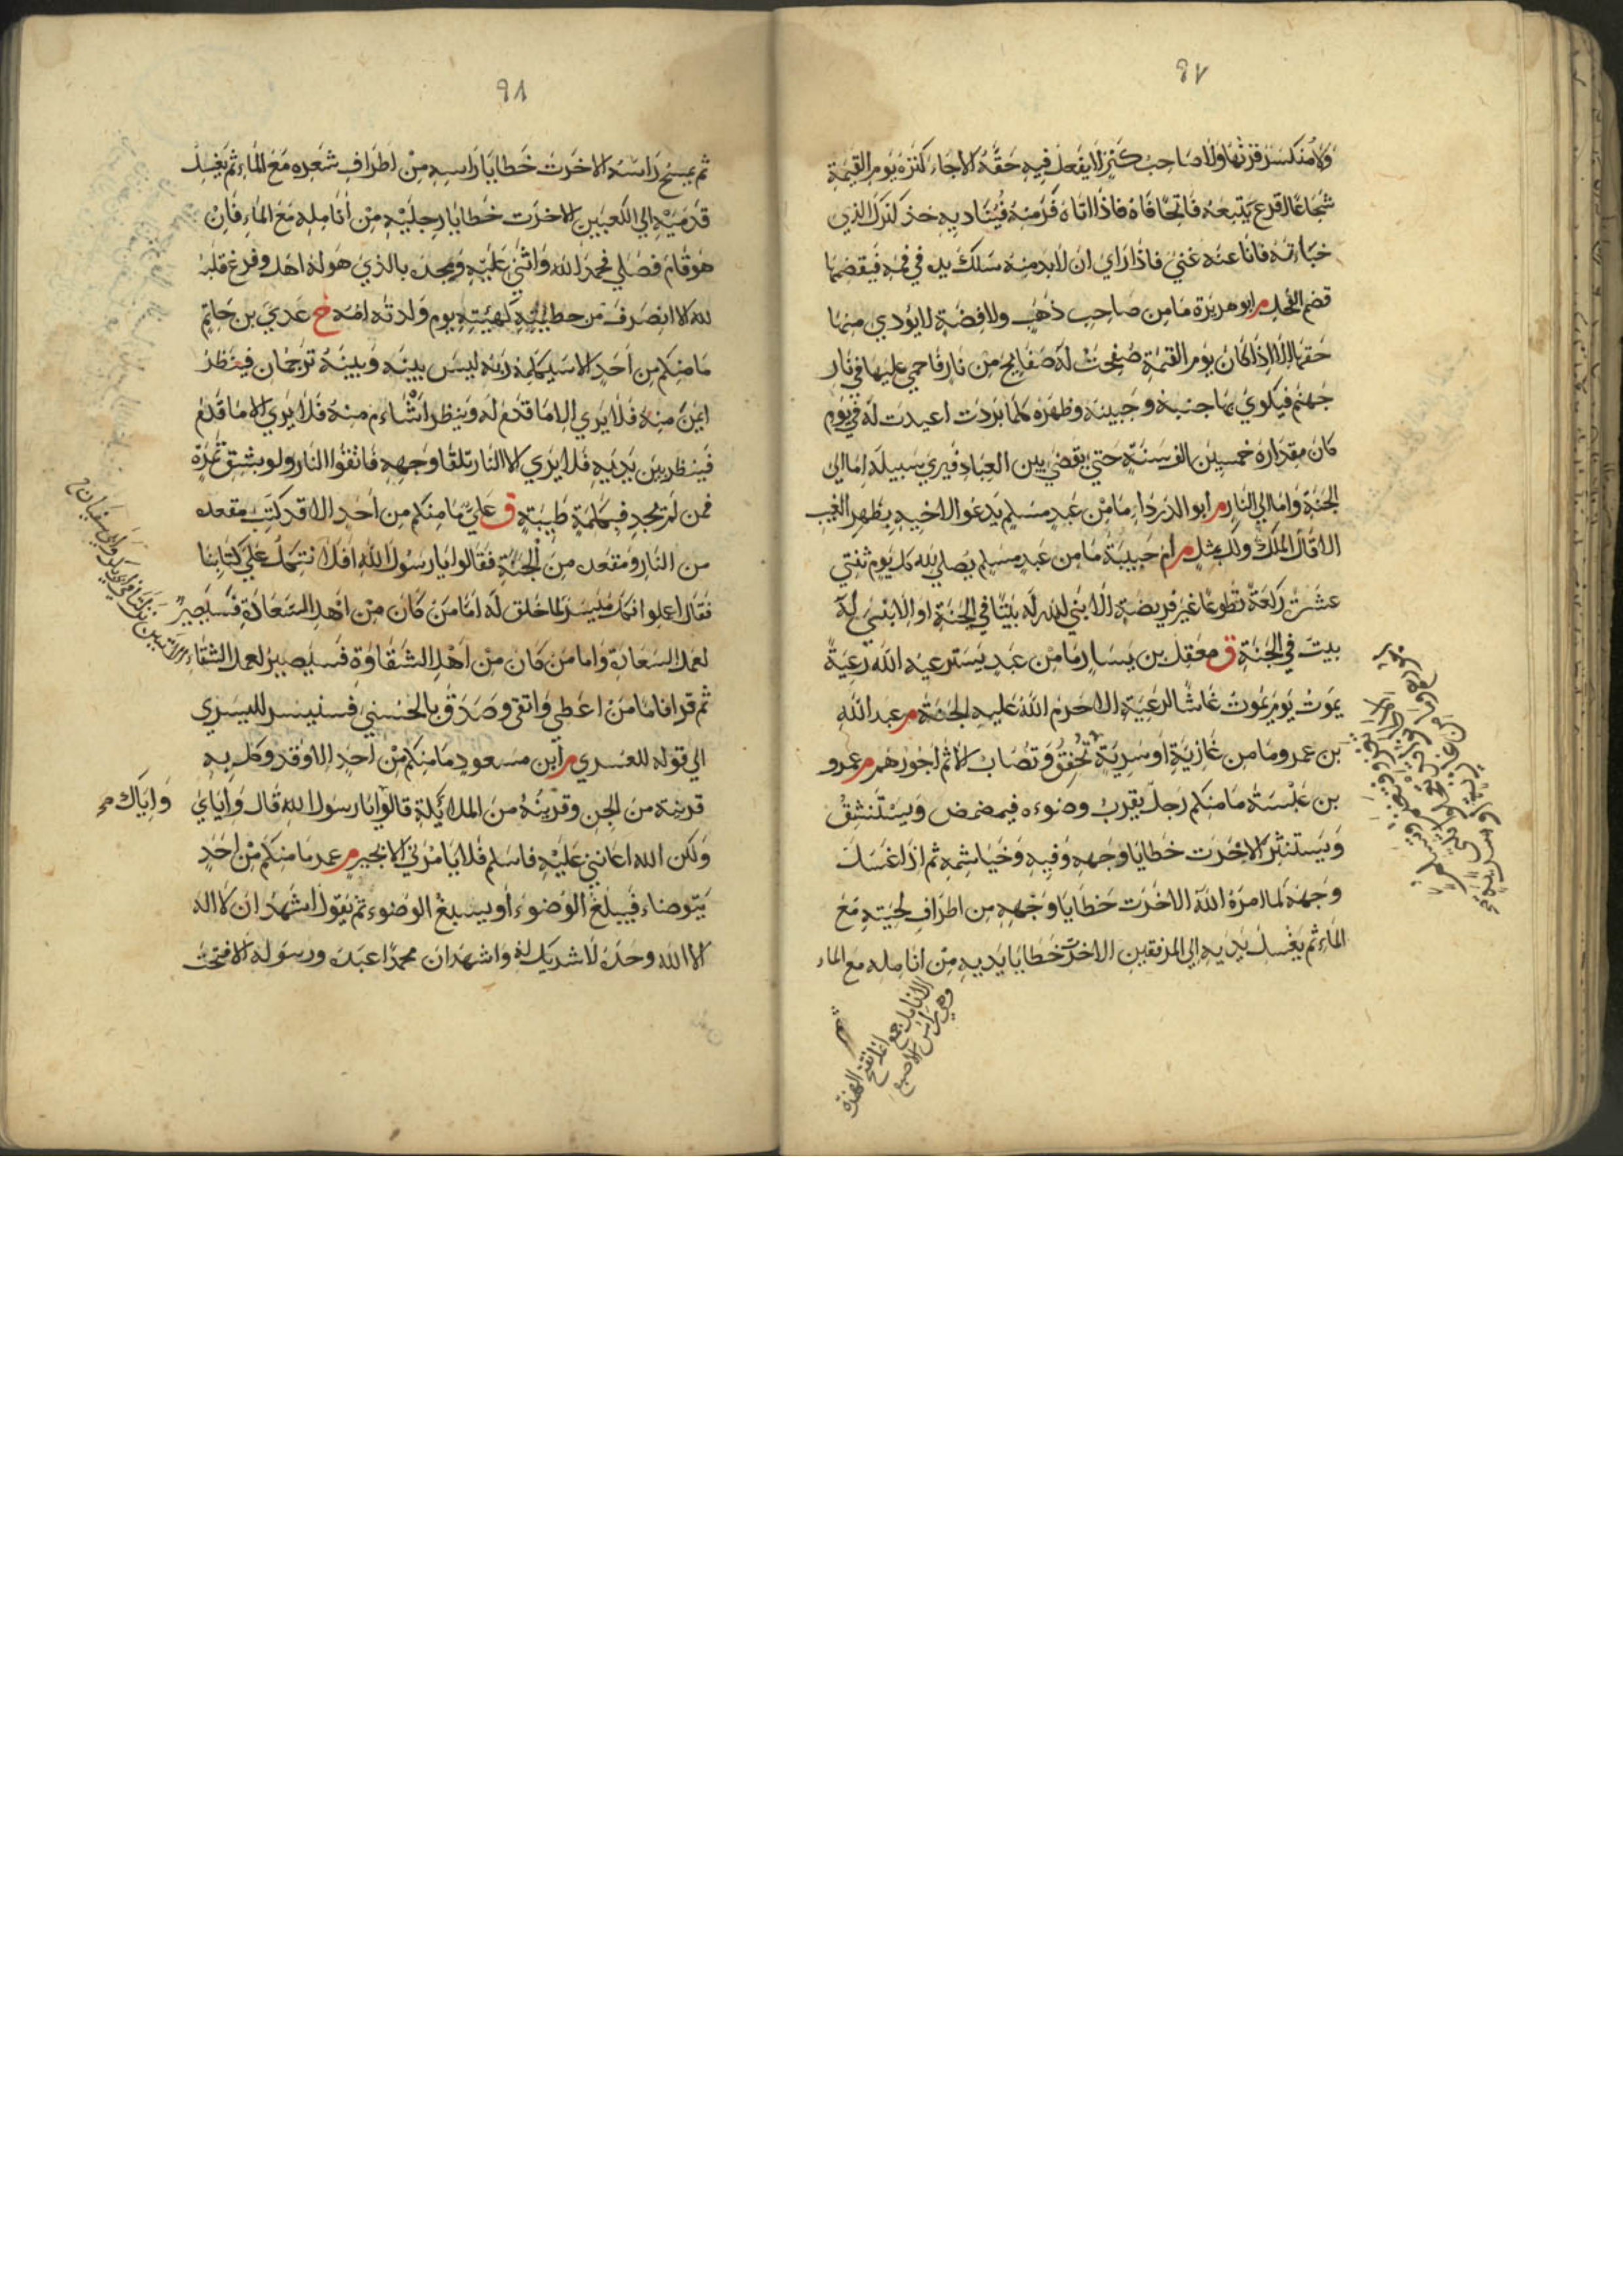 ٩٧
ولا منكسر قرنها ولا صاحب كنز لا يفعل فيه حقه الا جاء كنزه يوم القيمة
شجاعا اقرع يتبعه فاتحا فاه فاذا اتاه فر منه فيناديه خذ كنزك الذي
خباته فانا عنه غني فاذا راي ان لا بد منه سلك يده في فمه فيقضمها
قضم الفحل م ابو هريرة ما من صاحب ذهب ولا فضة لا يؤدي منها
حقها الا اذا كان يوم القيمة صفحت له صفايح من نار فاحمي عليها في نار
جهنم فيكوي بها جنبه وجبينه وظهره كلما بردت اعيدت له في يوم
كان مقداره خمسين الف سنة حتي يقضي بين العباد فيري سبيله اما الي
الجنة واما الي النار م ابو الدرداء ما من عبد مسلم يدعو لاخيه بظهر الغيب
الا قال الملك ولك بمثل م ام حبيبة ما من عبد مسلم يصلي لله كل يوم ثنتي
عشرة ركعة تطوعا غير فريضة الا بني الله له بيتا في الجنة او الا بني له
بيت في الجنة ق معقل بن يسار ما من عبد يسترعيه الله رعية
يموت يوم يموت غاشا لرعيته الا حرم الله عليه الجنة م عبد الله
بن عمرو ما من غازية او سرية تخفق وتصاب الا تم اجورهم م عمرو
بن عبسة ما منكم رجل يقرب وضوءه فيمضمض ويستنشق
ويستنثر الا خرت خطايا وجهه وفيه وخياشمه ثم اذا غسل
وجهه كما امره الله الا خرت خطايا وجهه من اطراف لحيته مع
الماء ثم يغسل يديه الي المرفقين الا خرت خطايا يديه من انامله مع الماء
ثم
الانامل جمع انملة بفتح الهمزة
وهي راس الاصبع
٩٨
ثم يمسح راسه الا خرت خطايا راسه من اطراف شعره مع الماء ثم يغسل
قدميه الي الكعبين الا خرت خطايا رجليه من انامله مع الماء فان
هو قام فصلي فحمد الله واثني عليه ومجده بالذي هو له اهل وفرغ قلبه
لله الا انصرف من خطيئته كهيئته يوم ولدته امه خ عدي بن حاتم
ما منكم من احد الا سيكلمه ربه ليس بينه وبينه ترجمان فينظر
ايمن منه فلا يري الا ما قدم له وينظر اشأم منه فلا يري الا ما قدم
فينظر بين يديه فلا يري الا النار تلقا وجهه فاتقوا النار ولو بشق تمرة
فمن لم يجد فبكلمة طيبة ق علي ما منكم من احد الا قد كتب مقعده
من النار ومقعده من الجنة فقالوا يا رسول الله افلا نتكل علي كتابنا
فقال اعملوا فكل ميسر لما خلق له اما من كان من اهل السعادة فسيصير
لعمل السعادة واما من كان من اهل الشقاوة فسيصير لعمل الشقاء
ثم قرا فاما من اعطي واتقي وصدق بالحسني فسنيسره لليسري
الي قوله للعسري م ابن مسعود ما منكم من احد الا وقد وكل به
قرينه من الجن وقرينه من الملائكة قالوا يا رسول الله قال واياي
واياك صح
ولكن الله اعانني عليه فاسلم فلا يامرني الا بخير م عمر ما منكم من احد
يتوضاء فيبلغ الوضوء او يسبغ الوضوء ثم يقول اشهد ان لا اله
الا الله وحده لا شريك له واشهد ان محمدا عبده ورسوله الا فتحت